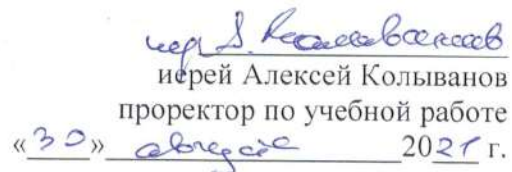 иерей Алексей Колыванов
проректор по учебной работе
«30» августа 2021 г.